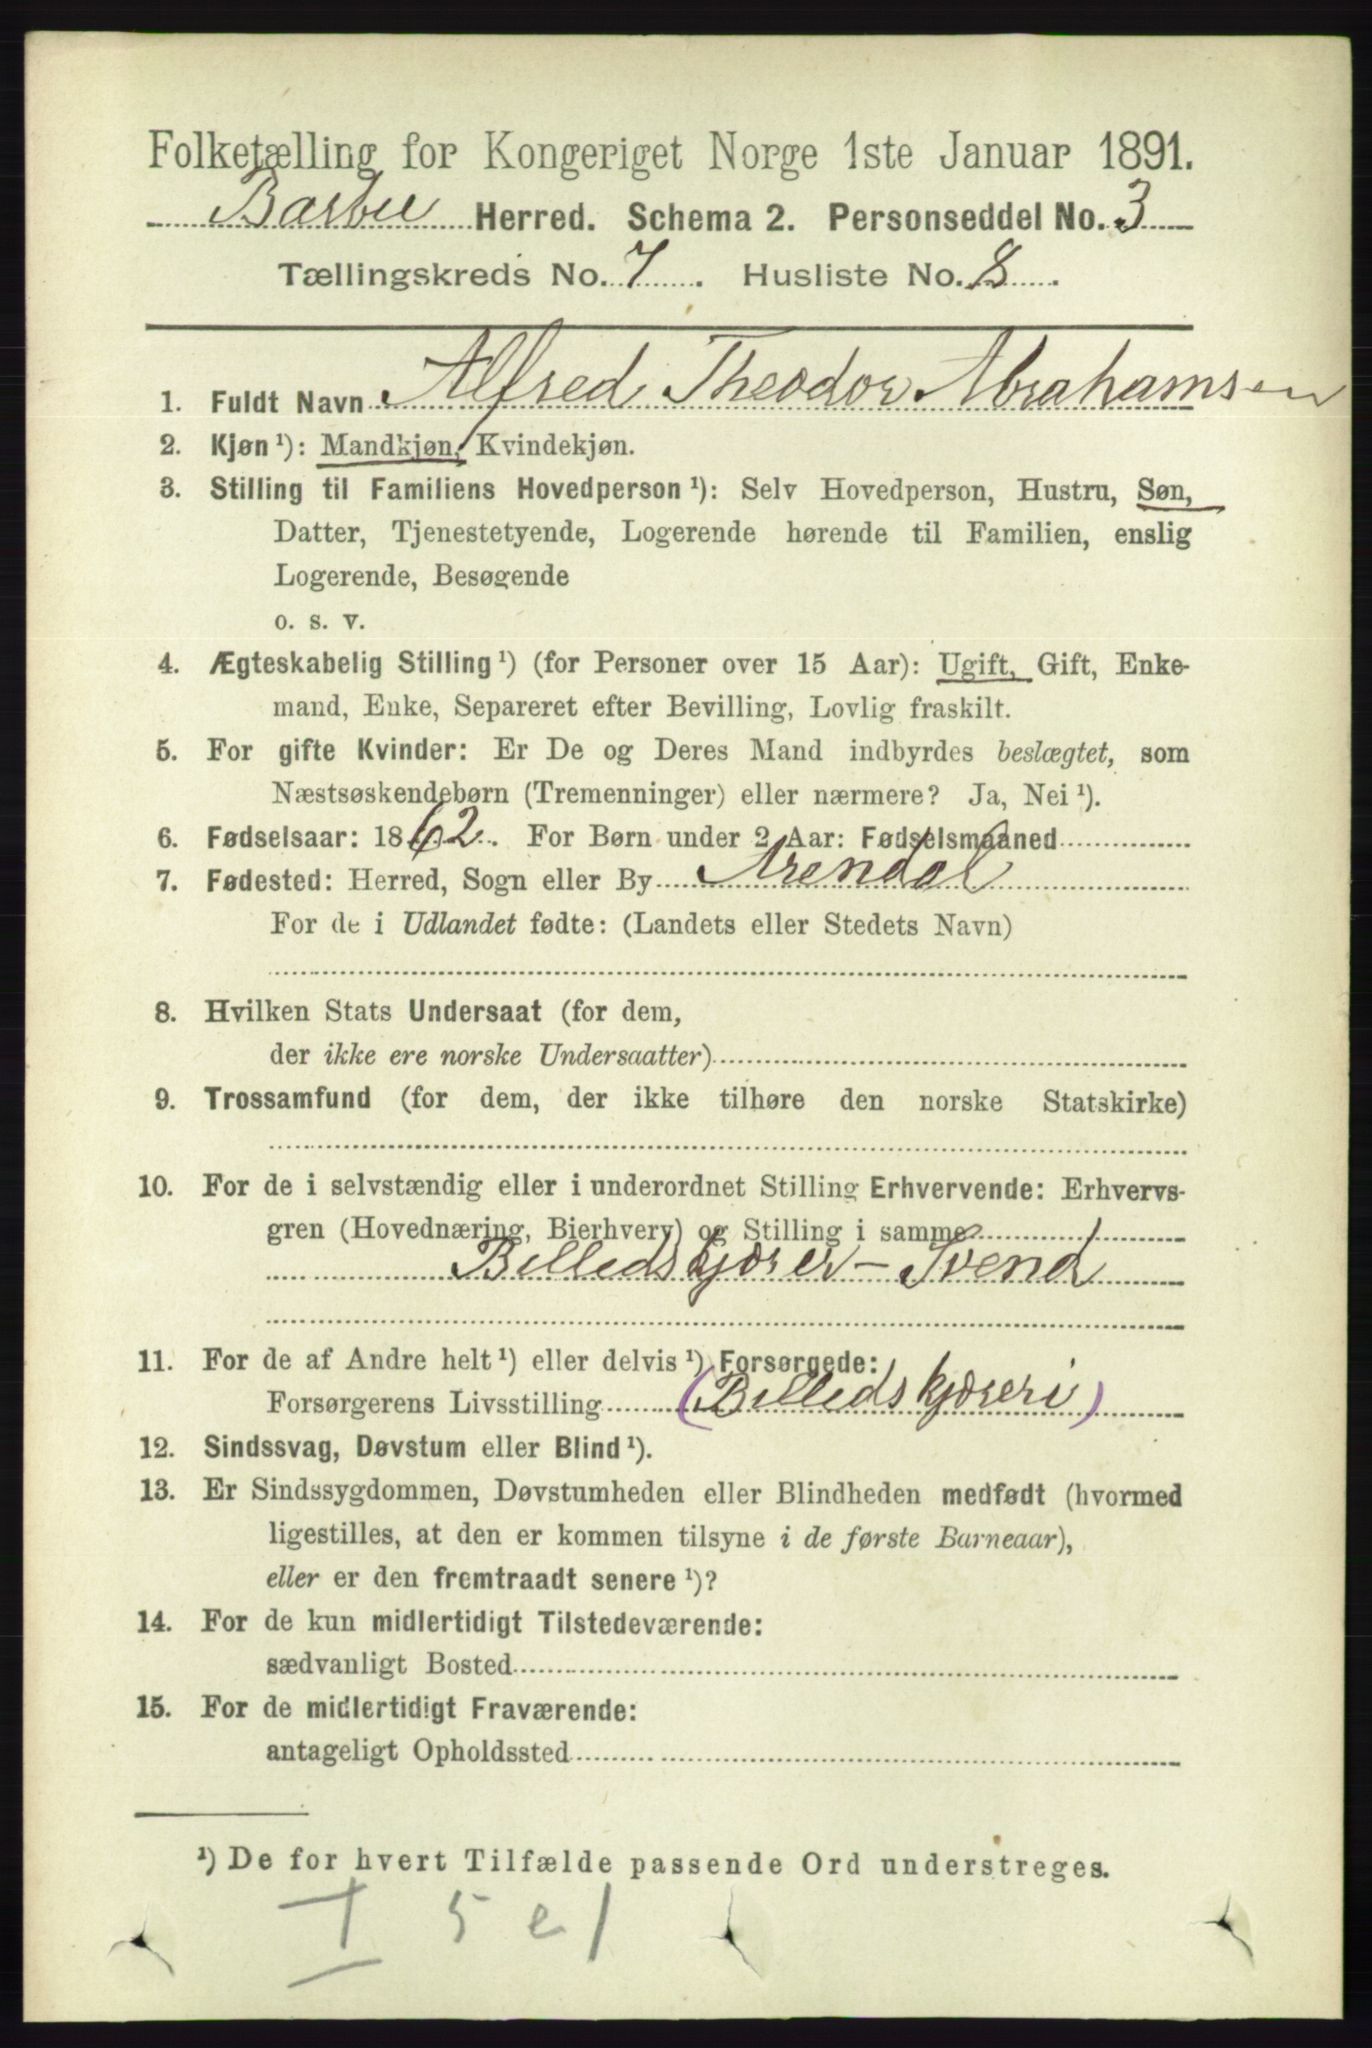 Folketælling for Kongeriget Norge 1ste Januar 1891.
Barbu Herred. Schema 2. Personseddel No. 3
Tællingskreds No. 7. Husliste No. 8.
1. Fuldt Navn Alfred Theodor Abrahamsen
2. Kjøn ¹): Mandkjøn, Kvindekjøn.
3. Stilling til Familiens Hovedperson ¹): Selv Hovedperson, Hustru, Søn,
Datter, Tjenestetyende, Logerende hørende til Familien, enslig
Logerende, Besøgende
o. s. v.
4. Ægteskabelig Stilling ¹) (for Personer over 15 Aar): Ugift, Gift, Enke-
mand, Enke, Separeret efter Bevilling, Lovlig fraskilt.
5. For gifte Kvinder: Er De og Deres Mand indbyrdes beslægtet, som
Næstsøskendebørn (Tremenninger) eller nærmere? Ja, Nei ¹).
6. Fødselsaar: 1862. For Børn under 2 Aar: Fødselsmaaned
7. Fødested: Herred, Sogn eller By Arendal
For de i Udlandet fødte: (Landets eller Stedets Navn)
8. Hvilken Stats Undersaat (for dem,
der ikke ere norske Undersaatter)
9. Trossamfund (for dem, der ikke tilhøre den norske Statskirke)
10. For de i selvstændig eller i underordnet Stilling Erhvervende: Erhvervs-
gren (Hovednæring, Bierhverv) og Stilling i samme
Billedskjærer - Svend
11. For de af Andre helt ¹) eller delvis ¹) Forsørgede:
Forsørgerens Livsstilling (Billedskjæreri)
12. Sindssvag, Døvstum eller Blind ¹).
13. Er Sindssygdommen, Døvstumheden eller Blindheden medfødt (hvormed
ligestilles, at den er kommen tilsyne i de første Barneaar),
eller er den fremtraadt senere ¹)?
14. For de kun midlertidigt Tilstedeværende:
sædvanligt Bosted
15. For de midlertidigt Fraværende:
antageligt Opholdssted
¹) De for hvert Tilfælde passende Ord understreges.
I 5 e 1